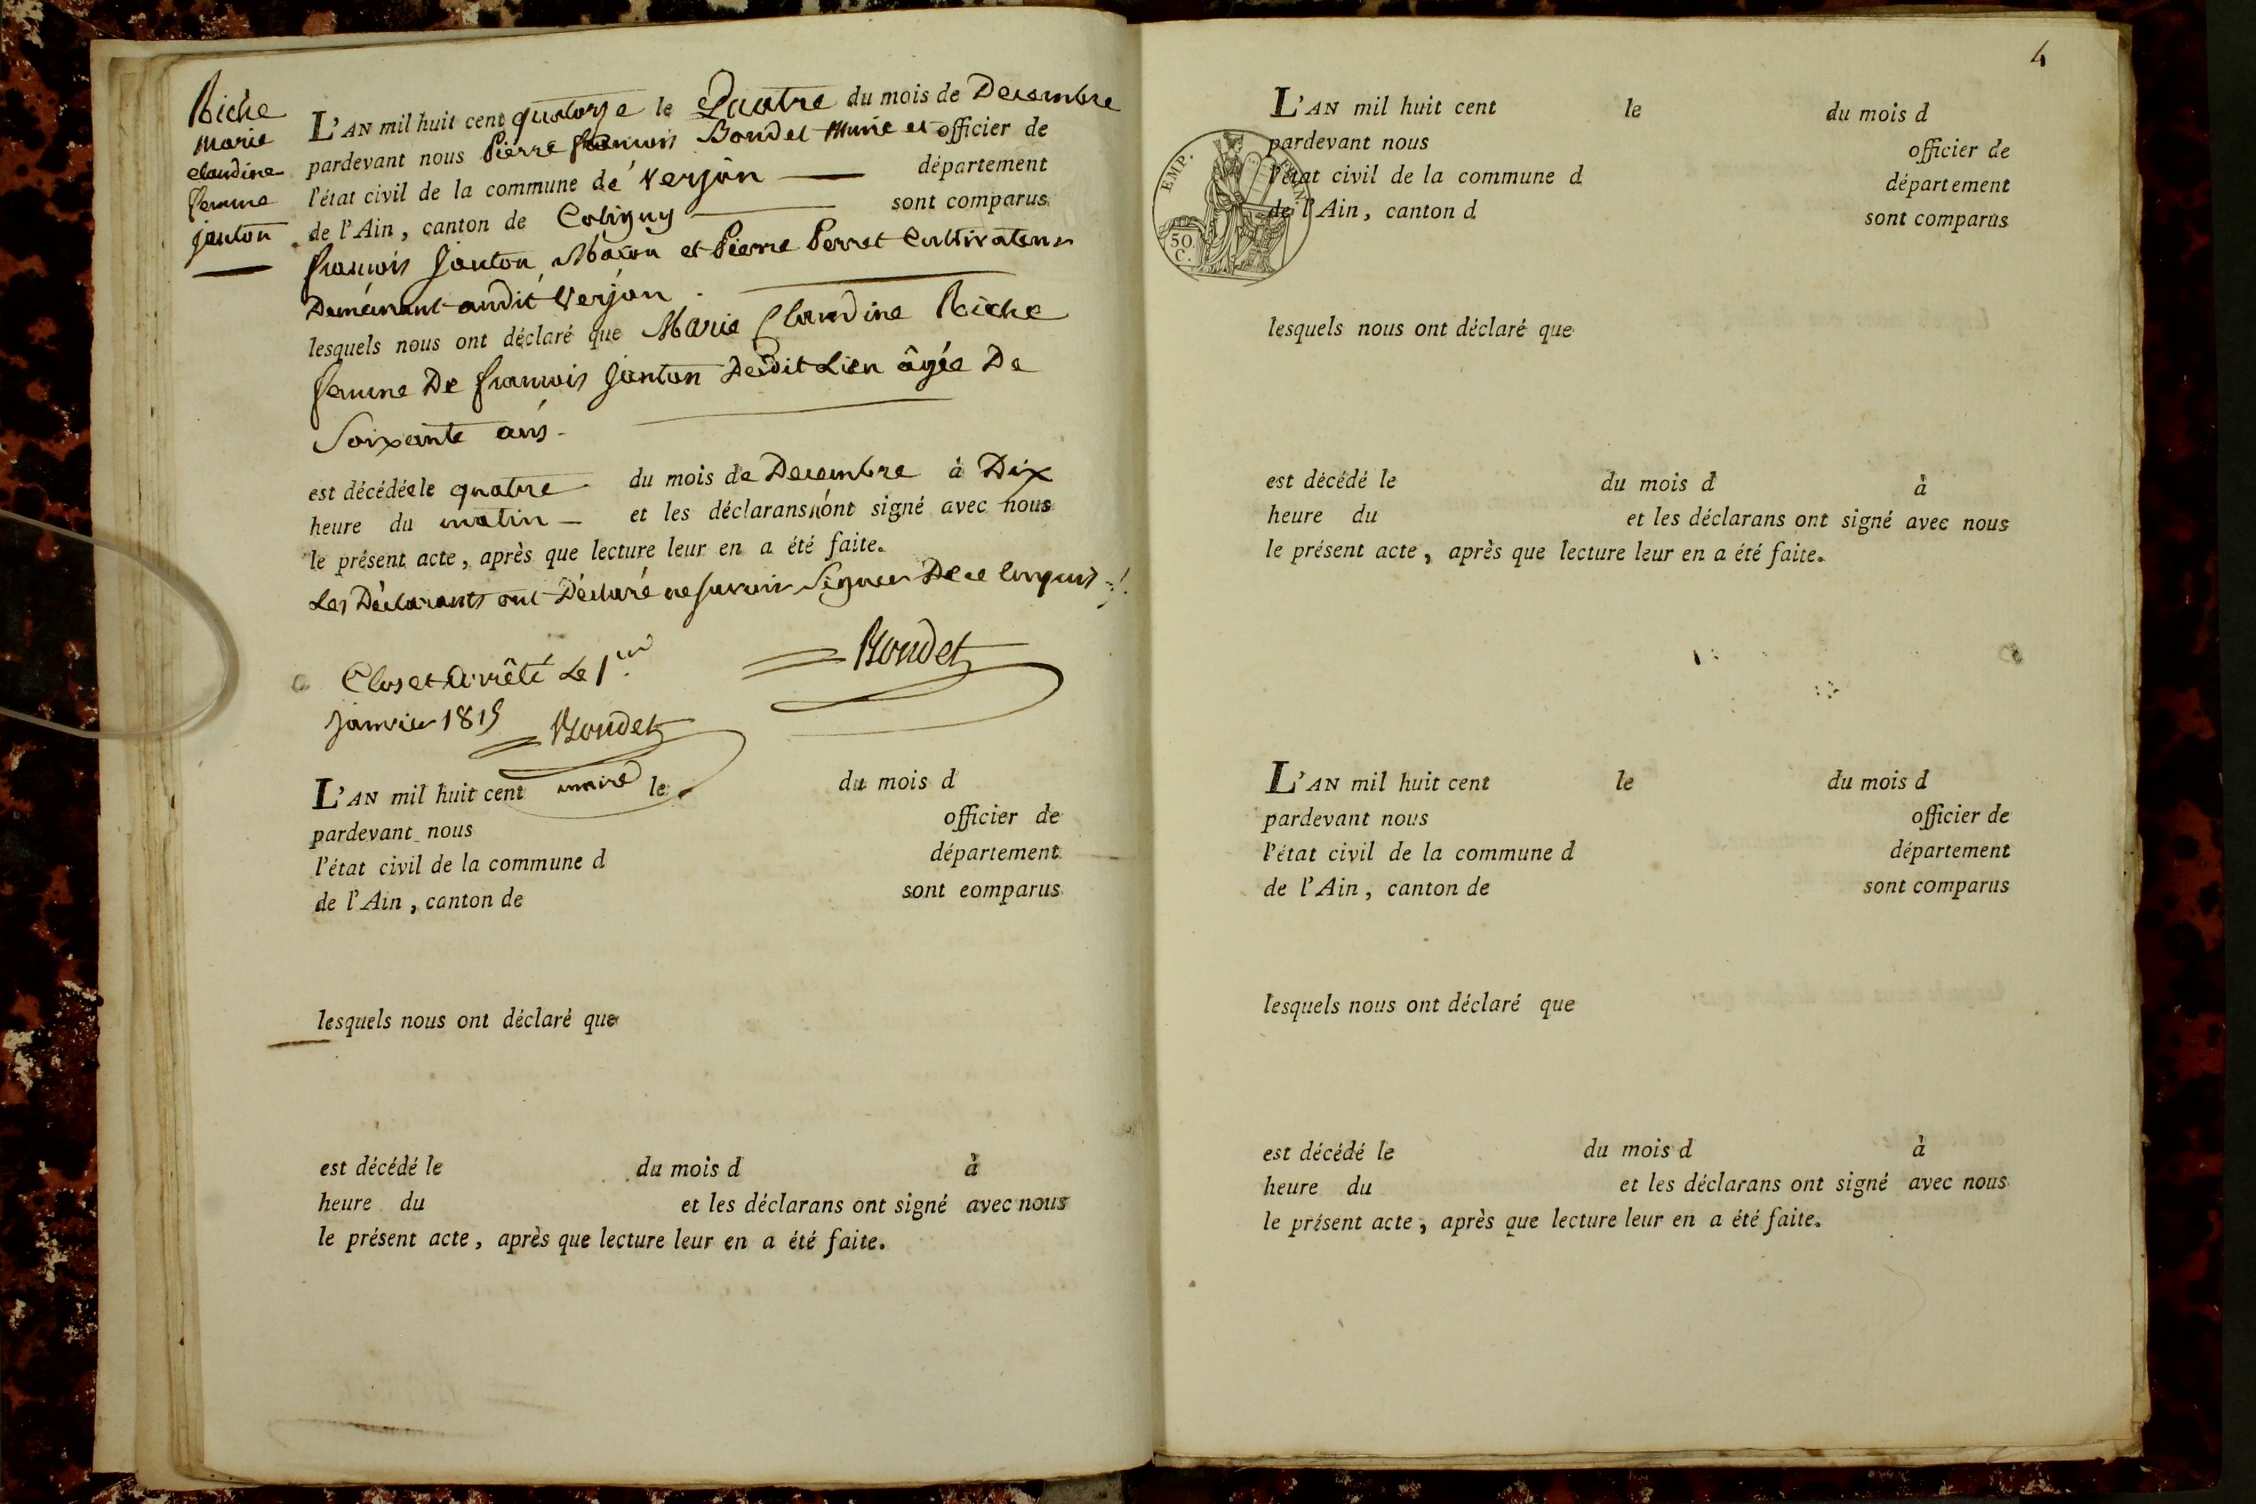 Riche
Marie
Claudine
femme
Janton
L'AN mil huit cent quatorze le Quatre du mois de Decembre
pardevant nous Pierre françois Bondet Maire et officier de
l'état civil de la commune de Verjon département
de l'Ain, canton de Coligny sont comparus
françois Janton, Maçon et Pierre Perret Cultivateur
Demeurant audit Verjon.
lesquels nous ont déclaré que Marie Claudine Riche
femme De françois Janton Dedit Lieu âgée De
Soixante ans.
est décédée le quatre du mois de Decembre à Dix
heure du matin et les déclarans n'ont signé avec nous
le présent acte, après que lecture leur en a été faite.
Les Déclarants ont Déclaré ne savoir Signer De ce Enquis
Bondet
Clos et Arrêté Le 1er
Janvier 1815 Bondet
maire
L'AN mil huit cent le du mois d
pardevant nous officier de
l'état civil de la commune d département
de l'Ain, canton de sont eomparus
lesquels nous ont déclaré que
est décédé le du mois d à
heure du et les déclarans ont signé avec nous
le présent acte, après que lecture leur en a été faite.
4
L'AN mil huit cent le du mois d
pardevant nous officier de
l'état civil de la commune d département
de l'Ain, canton d sont comparus
EMP.
50
C.
lesquels nous ont déclaré que
est décédé le du mois d à
heure du et les déclarans ont signé avec nous
le présent acte, après que lecture leur en a été faite.
L'AN mil huit cent le du mois d
pardevant nous officier de
l'état civil de la commune d département
de l'Ain, canton de sont comparus
lesquels nous ont déclaré que
est décédé le du mois d à
heure du et les déclarans ont signé avec nous
le présent acte, après que lecture leur en a été faite.